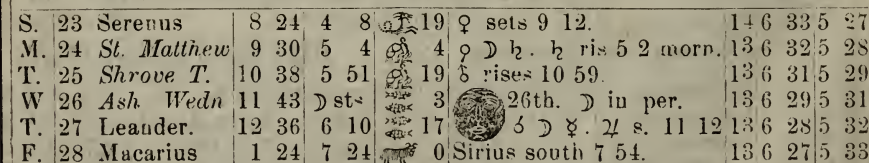 S. 23 Serenus 8 24 4 8 19 ♀ sets 9 12. 14 6 33 5 27
M. 24 St. Matthew 9 30 5 4 4 ☌ ☽ ♄. ♄ ris 5 2 morn. 13 6 32 5 28
T. 25 Shrove T. 10 38 5 51 19 rises 10 59. 13 6 31 5 29
W 26 Ash Wedn 11 43 ☽ sts 3 26th. ☽ in per. 13 6 29 5 31
T. 27 Leander. 12 36 6 10 17 ☌ ☽ ☿. ♃ s. 11 12 13 6 28 5 32
F. 28 Macarius 1 24 7 24 0 Sirius south 7 54. 13 6 27 5 33